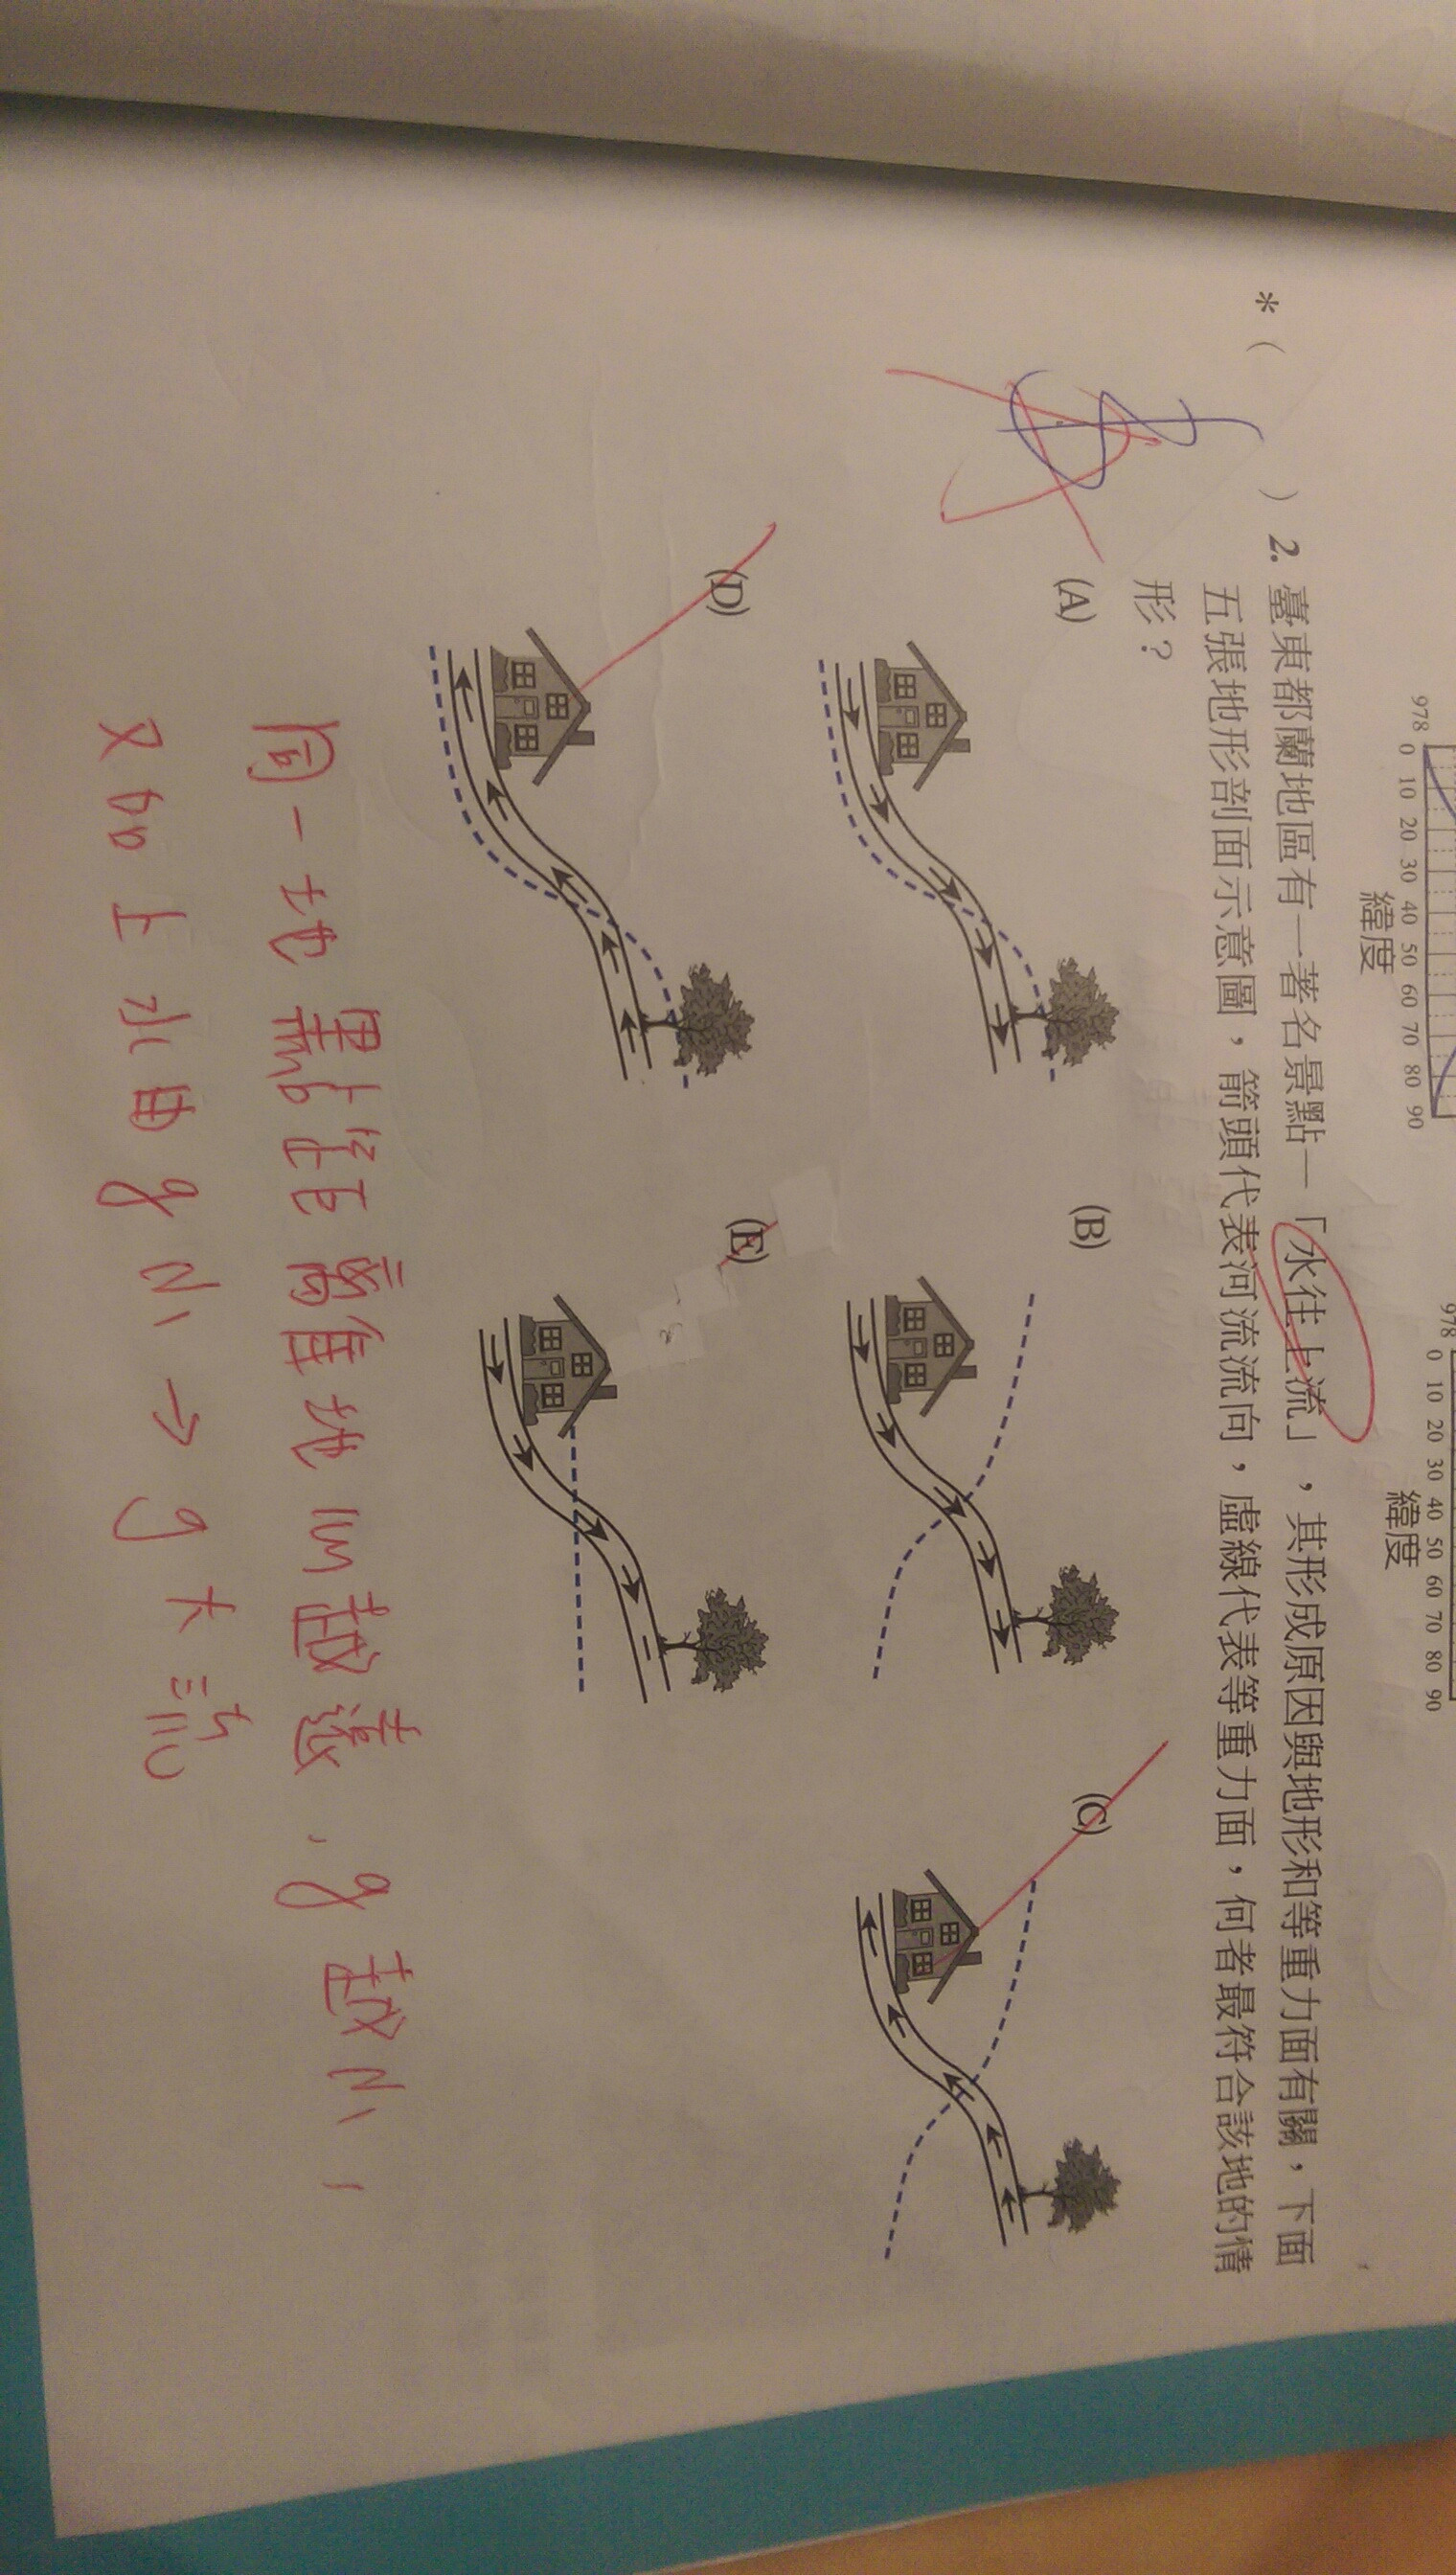 978 978
0 10 20 30 40 50 60 70 80 90 0 10 20 30 40 50 60 70 80 90
緯度 緯度
*( ) 2. 臺東都蘭地區有一著名景點—「水往上流」，其形成原因與地形和等重力面有關，下面
五張地形剖面示意圖，箭頭代表河流流向，虛線代表等重力面，何者最符合該地的情
形？
(A) (B) (C)
(D) (E)
同一地點距離地心越遠，g越小，
又加上水由g小→g大流